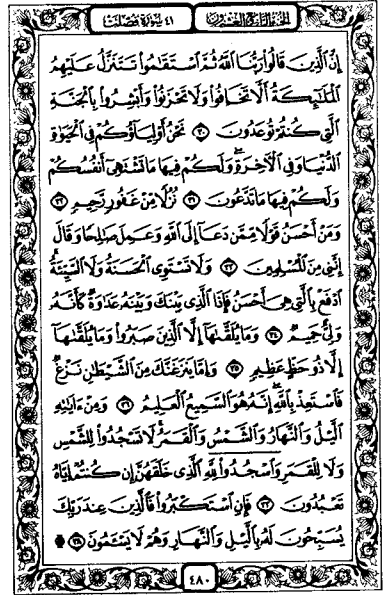 الجزء الرابع والعشرون ٤١ سورة فصلت
إِنَّ ٱلَّذِينَ قَالُوا۟ رَبُّنَا ٱللَّهُ ثُمَّ ٱسْتَقَـٰمُوا۟ تَتَنَزَّلُ عَلَيْهِمُ
ٱلْمَلَـٰٓئِكَةُ أَلَّا تَخَافُوا۟ وَلَا تَحْزَنُوا۟ وَأَبْشِرُوا۟ بِٱلْجَنَّةِ
ٱلَّتِى كُنتُمْ تُوعَدُونَ ٣٠ نَحْنُ أَوْلِيَآؤُكُمْ فِى ٱلْحَيَوٰةِ
ٱلدُّنْيَا وَفِى ٱلْـَٔاخِرَةِ وَلَكُمْ فِيهَا مَا تَشْتَهِىٓ أَنفُسُكُمْ
وَلَكُمْ فِيهَا مَا تَدَّعُونَ ٣١ نُزُلًا مِّنْ غَفُورٍ رَّحِيمٍ ٣٢
وَمَنْ أَحْسَنُ قَوْلًا مِّمَّن دَعَآ إِلَى ٱللَّهِ وَعَمِلَ صَـٰلِحًا وَقَالَ
إِنَّنِى مِنَ ٱلْمُسْلِمِينَ ٣٣ وَلَا تَسْتَوِى ٱلْحَسَنَةُ وَلَا ٱلسَّيِّئَةُ
ٱدْفَعْ بِٱلَّتِى هِىَ أَحْسَنُ فَإِذَا ٱلَّذِى بَيْنَكَ وَبَيْنَهُۥ عَدَٰوَةٌ كَأَنَّهُۥ
وَلِىٌّ حَمِيمٌ ٣٤ وَمَا يُلَقَّىٰهَآ إِلَّا ٱلَّذِينَ صَبَرُوا۟ وَمَا يُلَقَّىٰهَآ
إِلَّا ذُو حَظٍّ عَظِيمٍ ٣٥ وَإِمَّا يَنزَغَنَّكَ مِنَ ٱلشَّيْطَـٰنِ نَزْغٌ
فَٱسْتَعِذْ بِٱللَّهِ إِنَّهُۥ هُوَ ٱلسَّمِيعُ ٱلْعَلِيمُ ٣٦ وَمِنْ ءَايَـٰتِهِ
ٱلَّيْلُ وَٱلنَّهَارُ وَٱلشَّمْسُ وَٱلْقَمَرُ لَا تَسْجُدُوا۟ لِلشَّمْسِ
وَلَا لِلْقَمَرِ وَٱسْجُدُوا۟ لِلَّهِ ٱلَّذِى خَلَقَهُنَّ إِن كُنتُمْ إِيَّاهُ
تَعْبُدُونَ ٣٧ فَإِنِ ٱسْتَكْبَرُوا۟ فَٱلَّذِينَ عِندَ رَبِّكَ
يُسَبِّحُونَ لَهُۥ بِٱلَّيْلِ وَٱلنَّهَارِ وَهُمْ لَا يَسْـَٔمُونَ ۩ ٣٨
٤٨٠